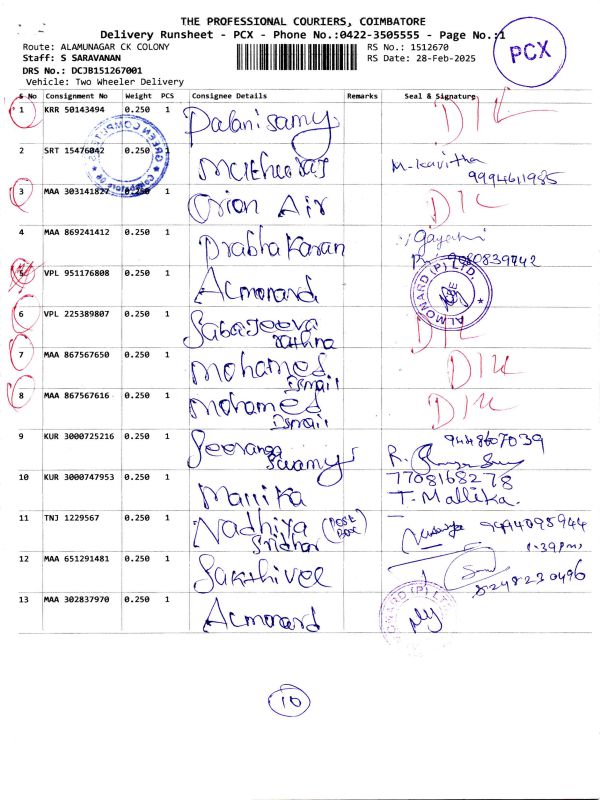 THE PROFESSIONAL COURIERS, COIMBATORE
Delivery Runsheet - PCX - Phone No.:0422-3505555 - Page No.:1
Route: ALAMUNAGAR CK COLONY
RS No.: 1512670
Staff: S SARAVANAN
RS Date: 28-Feb-2025
DRS No.: DCJB151267001
Vehicle: Two Wheeler Delivery
PCX
S No Consignment No Weight PCS Consignee Details Remarks Seal & Signature
1 KRR 50143494 0.250 1 Palanisamy
2 SRT 15476042 0.250 1 Muthuraj M-Kavitha
9994611985
3 MAA 303141827 0.250 1 Orion Air
4 MAA 869241412 0.250 1 Prabhakaran Gayathri
Ph: 9080839742
5 VPL 951176808 0.250 1 Almonard
ALMONARD (P) LTD.
6 VPL 225389807 0.250 1 Sabajeeva
Rathna
7 MAA 867567650 0.250 1 Mohamed
Ismail
8 MAA 867567616 0.250 1 Mohamed
Ismail
9 KUR 3000725216 0.250 1 Seeranga
Swamy
9448607039
10 KUR 3000747953 0.250 1 Mallika 7708168278
T. Mallika.
11 TNJ 1229567 0.250 1 Nadhiya (Post Box)
Sridhar
9994095944
1.39pm
12 MAA 651291481 0.250 1 Sakthivel
8248230496
13 MAA 302837970 0.250 1 Almonard
10